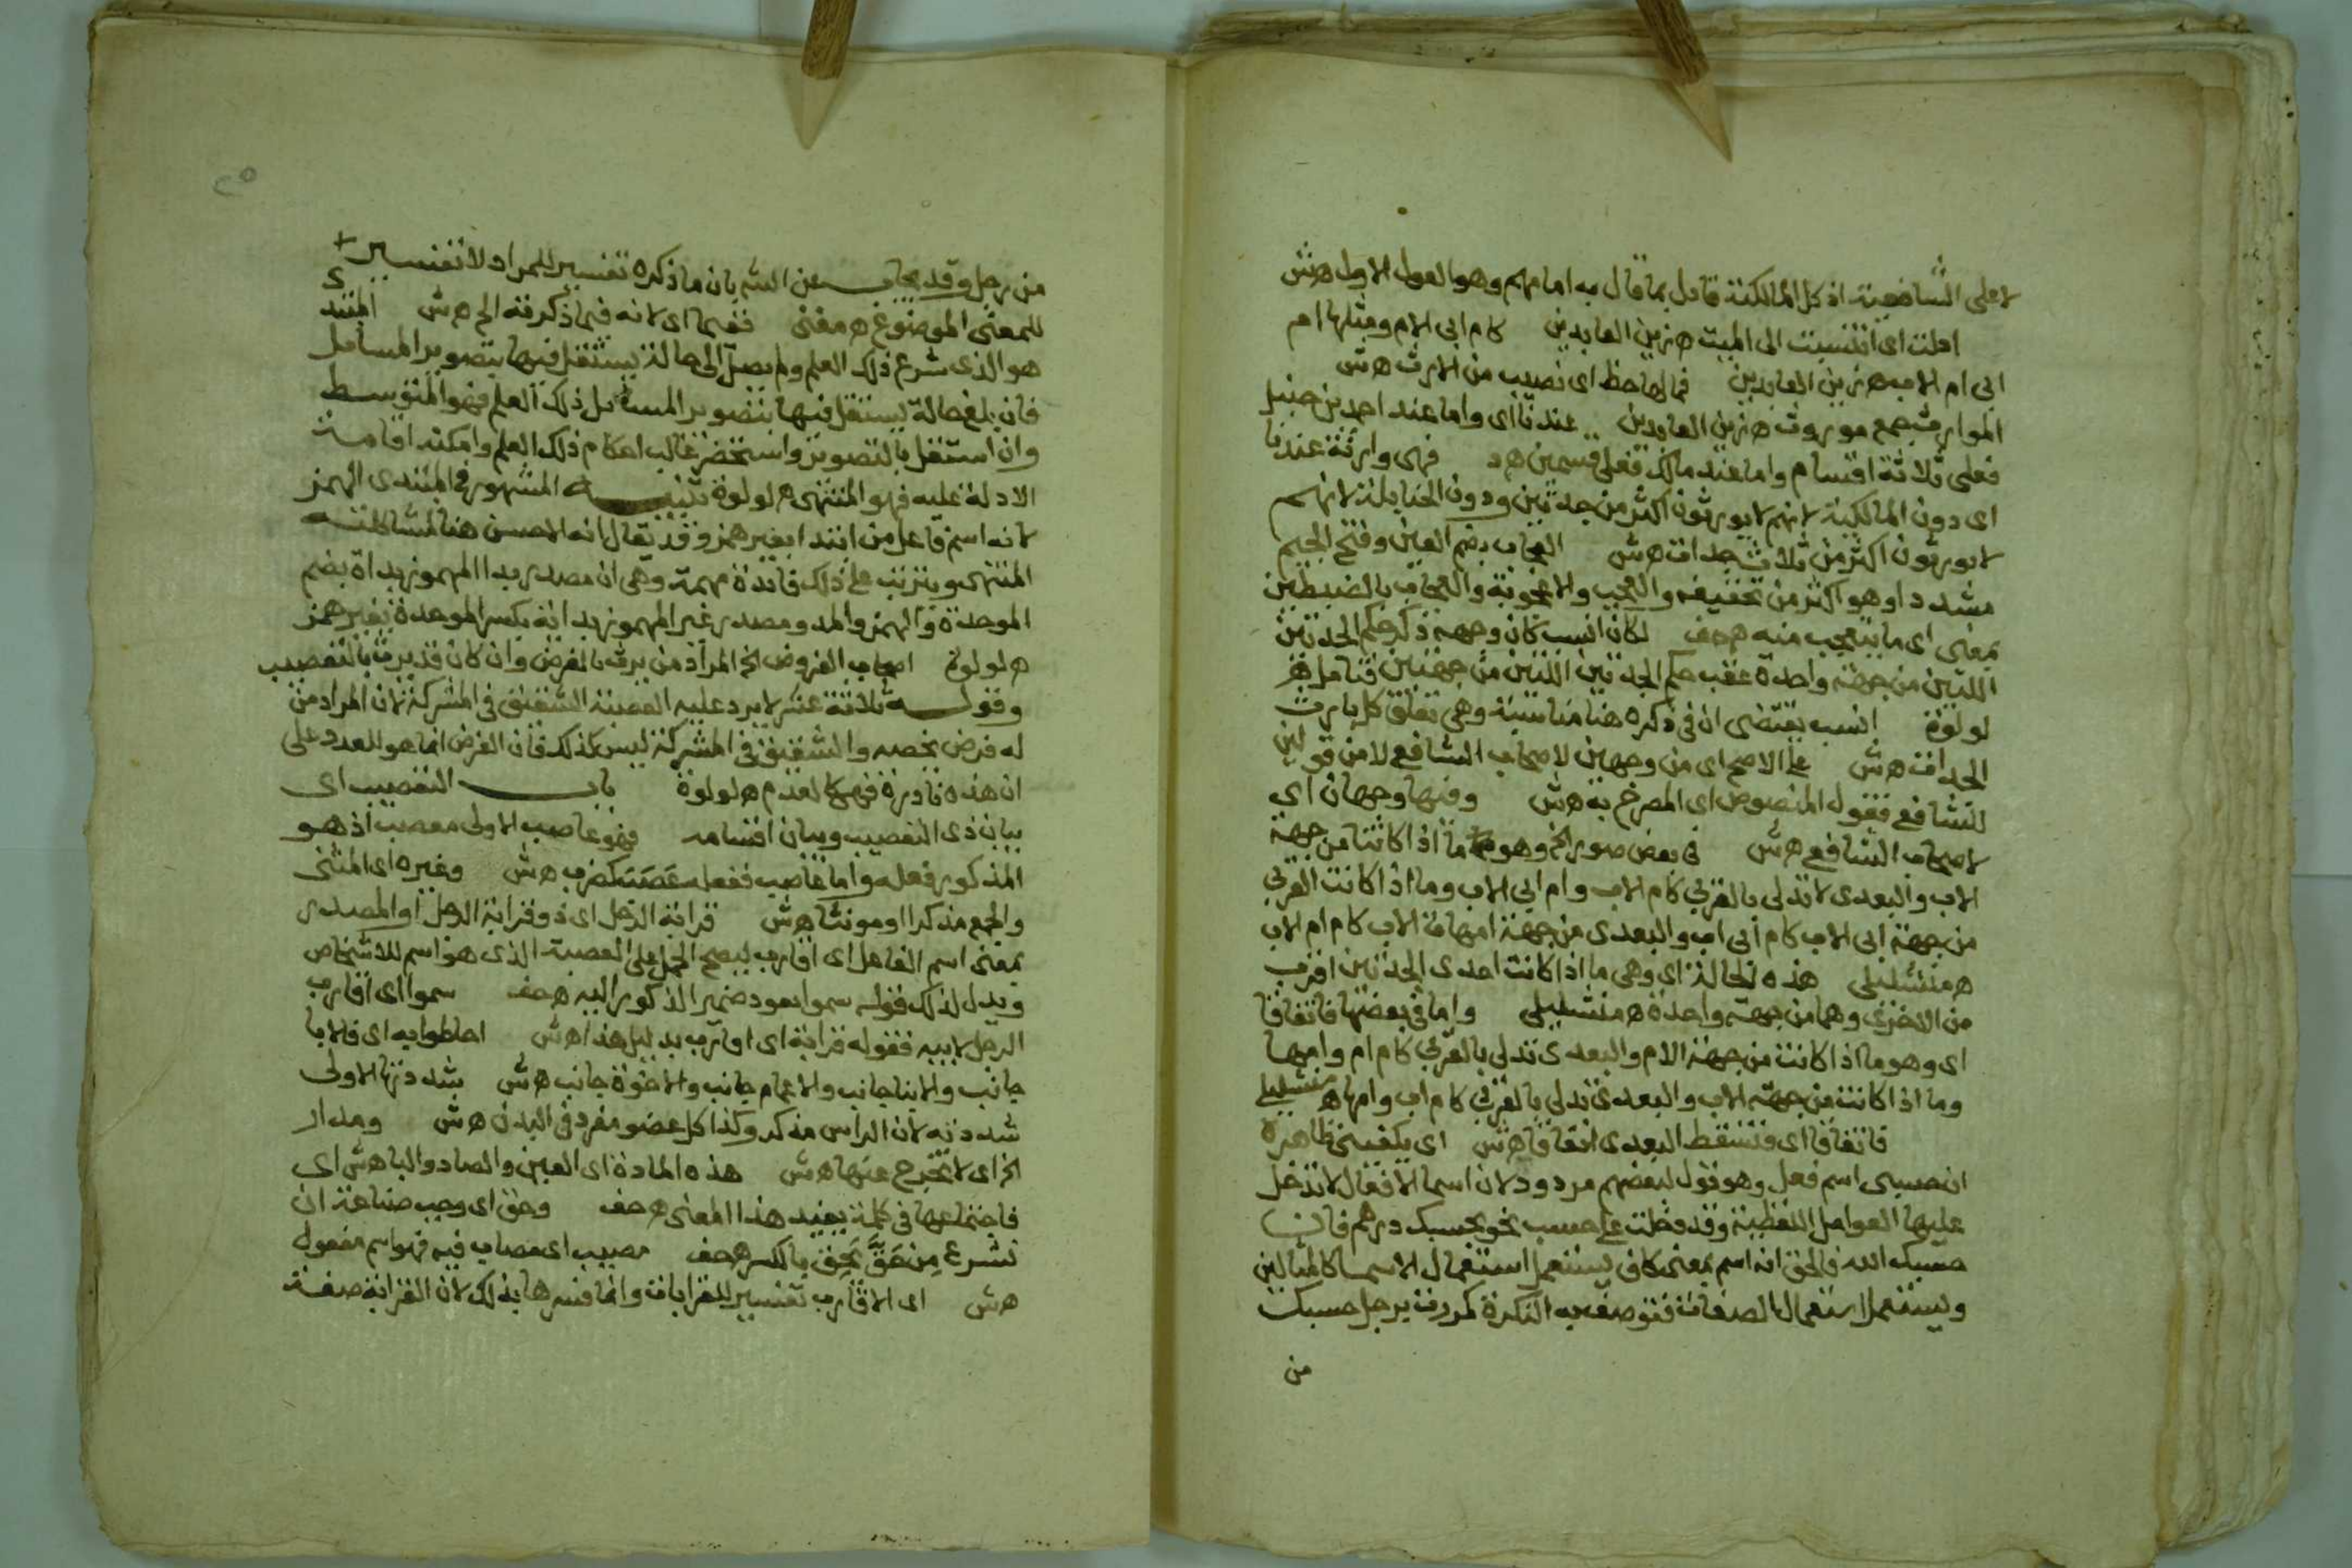 لاعلى الشافعية اذ كل المالكية قايل بما قال به امامهم وهو القول الاول ه ش
ادلت اى انتسبت الى الميت ه زين العابدين كام ابى الام ومثلها ام
ابى ام الاب ه زين العابدين فما لها حظ اى نصيب من الارث ه ش
المواريث جمع موروث ه زين العابدين عندنا اى واما عند احمد بن حنبل
فعلى ثلاثة اقسام واما عند مالك فعلى قسمين ه د فهى وارثة عندنا
اى دون المالكية لانهم لا يورثون اكثر من جدتين ودون الحنابلة لانهم
لا يورثون اكثر من ثلاث جدات ه ش العجاب بضم العين وفتح الجيم
مشددا وهو اكثر من تخفيفه والعجب والاعجوبة والعجاب بالضبطين
بمعنى اى ما يتعجب منه ه حف لكان انسب كان وجهه ذكر حكم الجدتين
اللتين من جهة واحدة عقب حكم الجدتين اللتين من جهتين فتامل ه
لولوة انسب يقتضى ان فى ذكره هنا مناسبة وهى تعلق كل بارث
الجدات ه ش على الاصح اى من وجهين لاصحاب الشافعى لا من قولين
للشافعى فقوله المنصوص اى المصرح به ه ش وفيها وجهان اى
لاصحاب الشافعى ه ش فى بعض صور الخ وهو ما اذا كانتا من جهة
الاب والبعدى لا تدلى بالقربى كام الاب وام ابى الاب وما اذا كانت القربى
من جهة ابى الاب كام ابى اب والبعدى من جهة امهات الاب كام ام الاب
ه منشليلى هذه الحالة اى وهى ما اذا كانت احدى الجدتين اقرب
من الاخرى وهما من جهة واحدة ه منشليلى واما فى بعضها فاتفاقا
اى وهو ما اذا كانت من جهة الام والبعدى تدلى بالقربى كام ام وامها
وما اذا كانت من جهة الاب والبعدى تدلى بالقربى كام اب وامها ه منشليلى
فاتفاقا اى فتسقط البعدى اتفاقا ه ش اى يكفينى ظاهره
ان حسبى اسم فعل وهو قول لبعضهم مردود لان اسما الافعال لا تدخل
عليها العوامل اللفظية وقد دخلت على حسب نحو بحسبك درهم فان
حسبك الله فالحق انه اسم بمعنى كافى يستعمل استعمال الاسما كالمثالين
ويستعمل استعمال الصفات فتوصف به النكرة كمررت برجل حسبك
من
من رجل وقد يجاب عن الشه بان ما ذكره تفسير للمراد لا تفسير
للمعنى الموضوع ه مغنى ففيما اى لانه فيما ذكرته الخ ه ش المبتدى
هو الذى شرع ذلك العلم ولم يصل الى حالة يستقل فيها بتصوير المسايل
فان بلغ حالة يستقل فيها بتصوير المسايل ذلك العلم فهو المتوسط
وان استقل بالتصوير واستحضر غالب احكام ذلك العلم وامكنه اقامة
الادلة عليه فهو المنتهى ه لولوة تنبيه المشهور فى المبتدى الهمز
لانه اسم فاعل من ابتدا بغير همز وقد يقال انه الاحسن هنا لمشاكلته
المنتهى ويترتب على ذلك فايدة مهمة وهى ان مصدر بدا المهموز بداة بضم
الموحدة والهمز والمد ومصدر غير المهموز بداية بكسر الموحدة بغير همز
ه لولوة اصحاب الفروض الخ المراد من يرث بالفرض وان كان قد يرث بالتعصيب
وقوله ثلاثة عشر لا يرد عليه العصبة الشقيق فى المشركة لان المراد من
له فرض يخصه والشقيق فى المشركة ليس كذلك فان الفرض انما هو للعدد على
ان هذه نادرة فهى كالعدم ه لولوة باب التعصيب اى
بيان ذى التعصيب وبيان اقسامه فهو عاصب الاولى معصب اذ هو
المذكور فعله واما عاصب ففعله عصب كضرب ه ش وغيره اى المثنى
والجمع مذكرا او مونثا ه ش قرابة الرجل اى ذو قرابة الرجل او المصدر
بمعنى اسم الفاعل اى اقارب ليصح الحمل على العصبة الذى هو اسم للاشخاص
ويدل لذلك قوله سموا بعود ضمير الذكور اليه ه حف سموا اى اقارب
الرجل لابيه فقوله قرابة اى اقارب بدليل هذا ه ش احاطوا به اى فالابا
جانب والابنا جانب والاعمام جانب والاخوة جانب ه ش شددتها الاولى
شددته لان الراس مذكر وكذا كل عضو مفرد فى البدن ه ش ومدار
الخ اى لا تخرج عنها ه ش هذه المادة اى العين والصاد والبا ه ش اى
فاجتماعها فى كلمة يفيد هذا المعنى ه حف وحق اى وجب صناعة ان
نشرع مِن حَقَّ يَحِق بالكسر ه حف مصيب اى مصاب فيه فهو اسم مفعول
ه ش اى الاقارب تفسير للقرابات وانما فسرها بذلك لان القرابة صفة